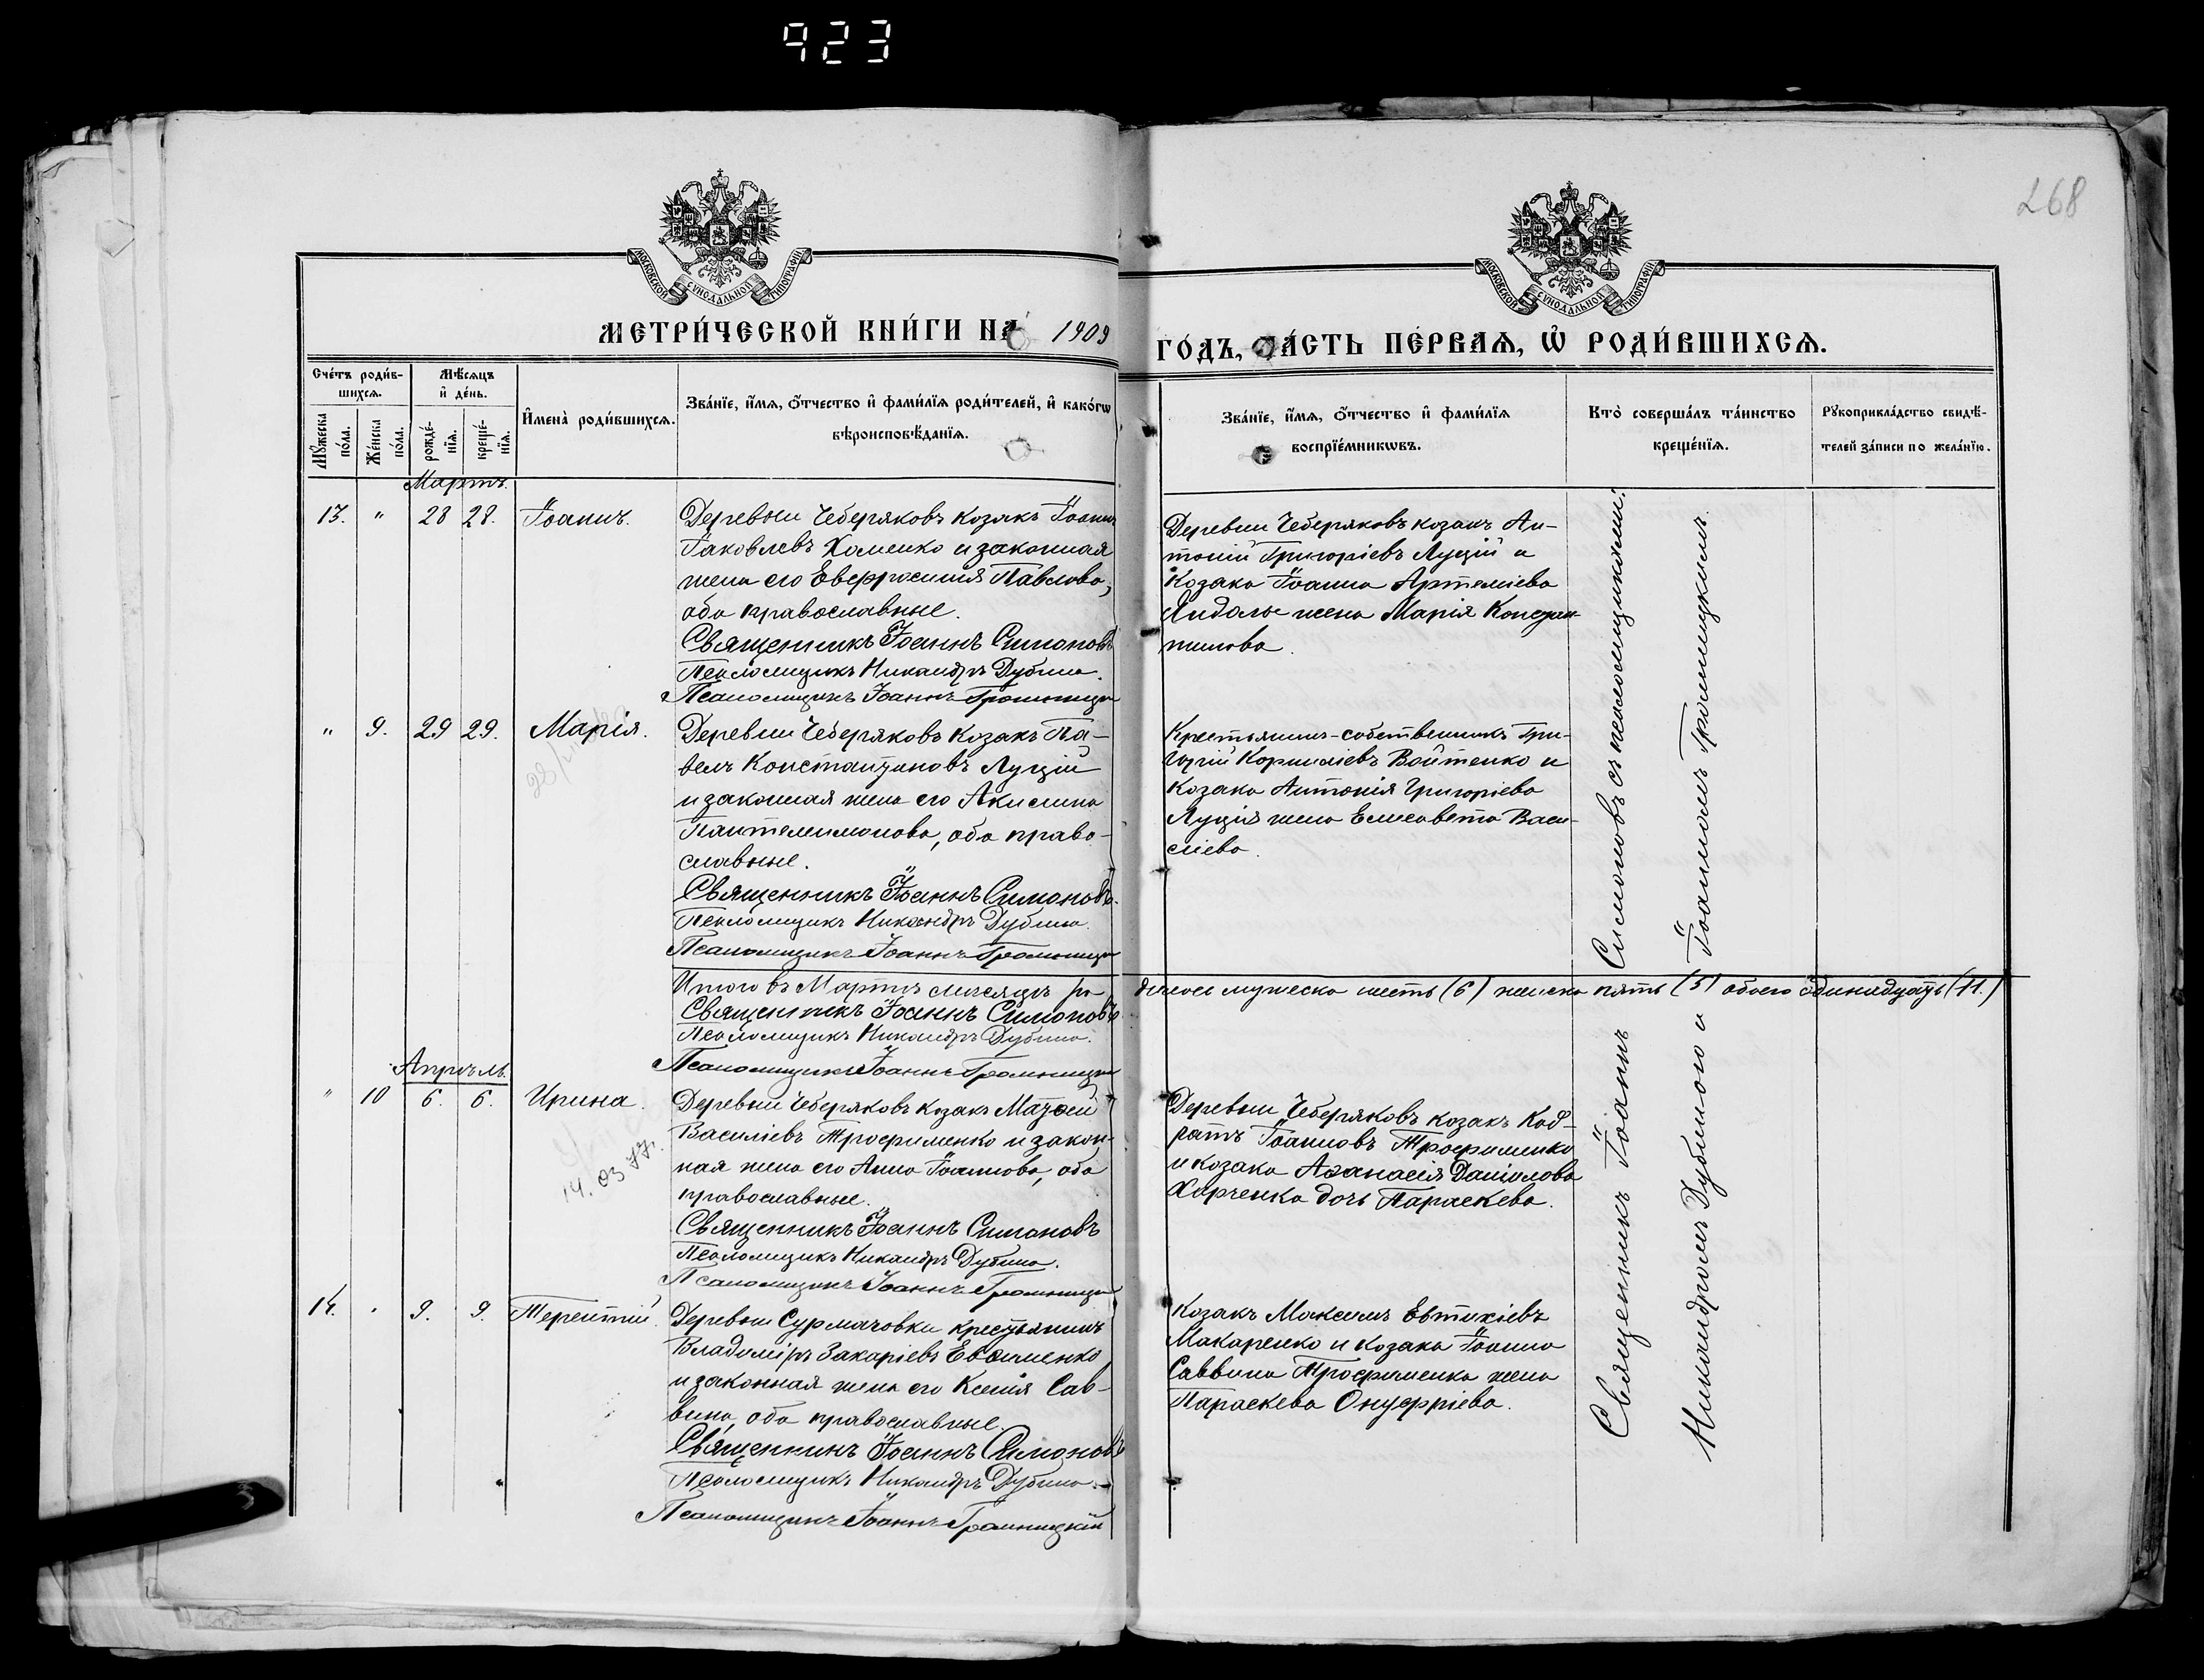 923
268
МОСКОВСКОЙ СѴНОДАЛЬНОЙ ТИПОГРАФІИ
МОСКОВСКОЙ СѴНОДАЛЬНОЙ ТИПОГРАФІИ
МЕТРИ́ЧЕСКОЙ КНИ́ГИ НА 1909
ГО́ДЪ, ЧА́СТЬ ПЕ́РВАЯ, Ѡ҆ РОДИ́ВШИХСѦ.
Сче́тъ роди́в-
шихсѧ.
Мꙋ́жеска по́ла.
Же́нска по́ла.
Мѣ́сѧцъ
и҆ де́нь.
рожде́-
нїѧ.
креще́-
нїѧ.
И҆мена̀ роди́вшихсѧ.
Зва́нїе, и҆́мѧ, ѻ҆́тчество и҆ фами́лїѧ роди́телей, и҆ како́гѡ
вѣроисповѣ́данїѧ.
Зва́нїе, и҆́мѧ, ѻ҆́тчество и҆ фами́лїѧ
воспрїе́мникѡвъ.
Кто̀ соверша́лъ та́инство
креще́нїѧ.
Рꙋкоприкла́дство свидѣ́-
телей за́писи по жела́нїю.
Мартъ.
13. " 28 28. Іоаннъ.
Деревни Чеберяковъ козакъ Іоаннъ
Іаковлевъ Хоменко и законная
жена его Евфросинія Павлова,
оба православные.
Священникъ Іоаннъ Симоновъ
Псаломщикъ Никандръ Дубина.
Псаломщикъ Іоаннъ Громницкій
Деревни Чеберяковъ козакъ Ан-
тоній Григоріевъ Луцій и
козака Іоанна Артеміева
жена Марія Констан-
тинова.
" 9. 29 29. Марія.
Деревни Чеберяковъ козакъ Па-
велъ Константиновъ Луцій
и законная жена его Акилина
Пантелеимонова, оба право-
славные.
Священникъ Іоаннъ Симоновъ.
Псаломщикъ Никандръ Дубина.
Псаломщикъ Іоаннъ Громницкій
Крестьянинъ-собственникъ Гри-
горій Корниліевъ Войтенко и
козака Антонія Григоріева
Луція жена Елисавета Васи-
ліева.
Итого въ Мартѣ мѣсяцѣ ро
дилось мужеска шесть (6) женска пять (5) обоего одинадцать (11.)
Священникъ Іоаннъ Симоновъ
Псаломщикъ Никандръ Дубина.
Псаломщикъ Іоаннъ Громницкій
Апрѣль.
" 10 6. 6. Ирина.
14. 03 77.
Деревни Чеберяковъ козакъ Матѳей
Василіевъ Трофименко и закон-
ная жена его Анна Іоаннова, оба
православные.
Священникъ Іоаннъ Симоновъ
Псаломщикъ Никандръ Дубина.
Псаломщикъ Іоаннъ Громницкій
Деревни Чеберяковъ козакъ Код-
ратъ Іоанновъ Трофименко
и козака Аѳанасія Даніилова
Харченка дочь Параскева.
14. " 9. 9. Терентій.
Деревни Сурмачовки крестьянинъ
Владиміръ Захаріевъ Евѳименко
и законная жена его Ксенія Сав-
вина, оба православные.
Священникъ Іоаннъ Симоновъ
Псаломщикъ Никандръ Дубина.
Псаломщикъ Іоаннъ Громницкій
Козакъ Максимъ Евтихіевъ
Макаренко и козака Іоанна
Саввина Трофименка жена
Параскева Онуфріева.
Священникъ Іоаннъ Симоновъ съ псаломщиками:
Никандромъ Дубиною и Іоанномъ Громницкимъ.